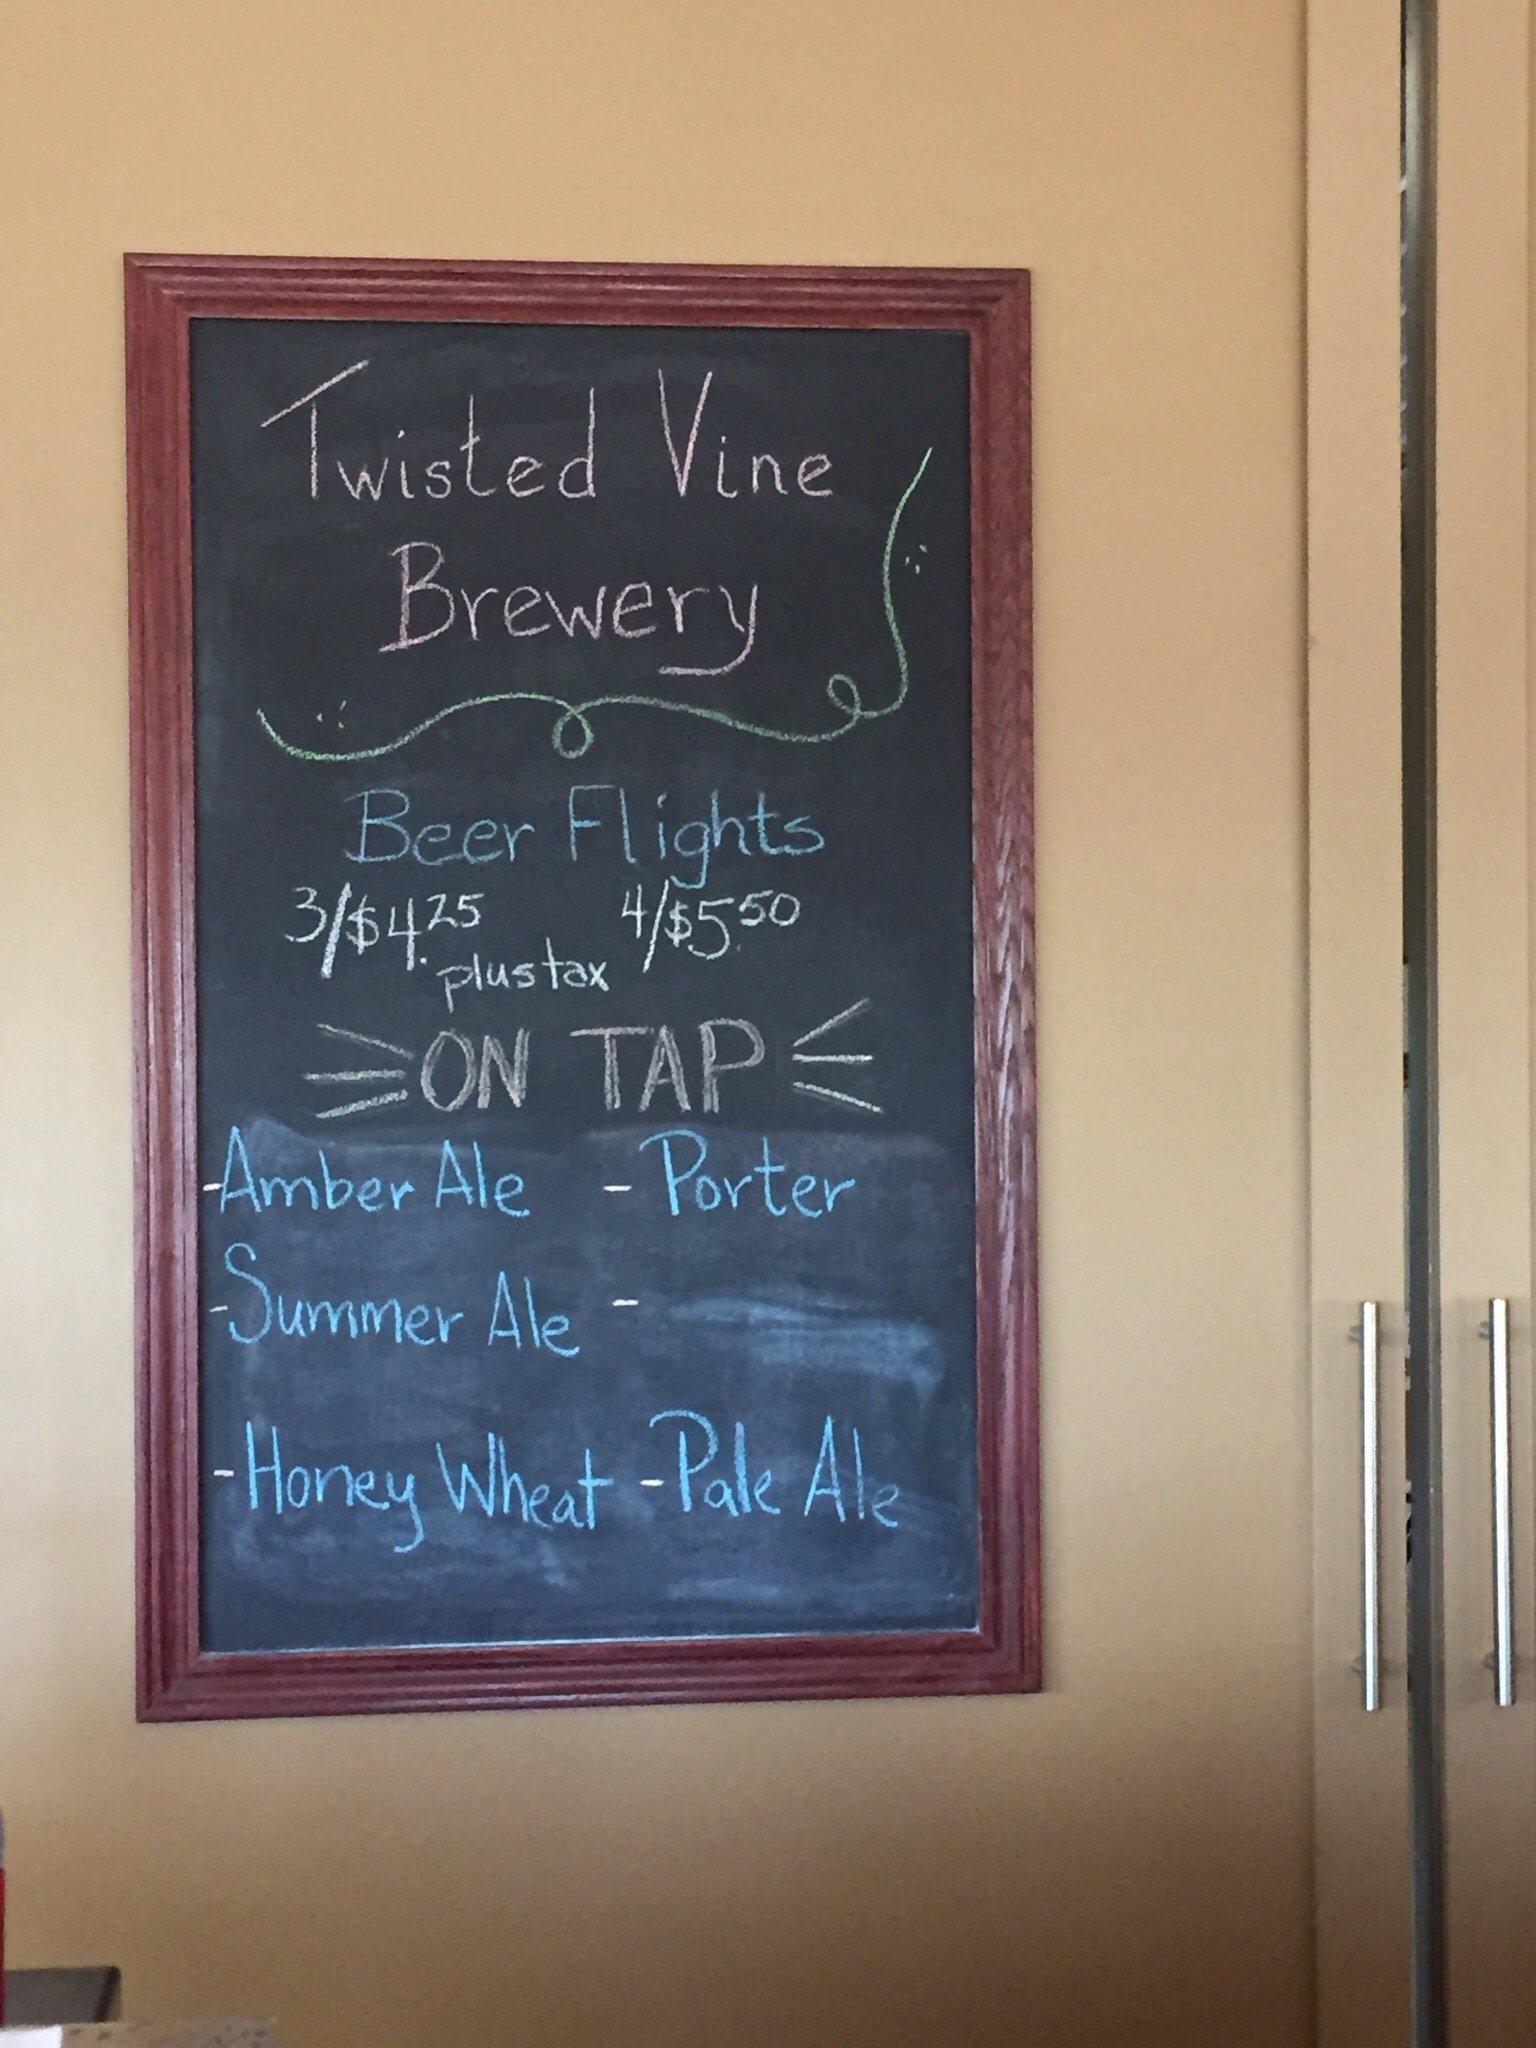 Twisted Vine
Brewery
Beer Flights
3/$4.25 4/$5.50
plus tax
ON TAP
-Amber Ale - Porter
-Summer Ale -
-Honey Wheat -Pale Ale